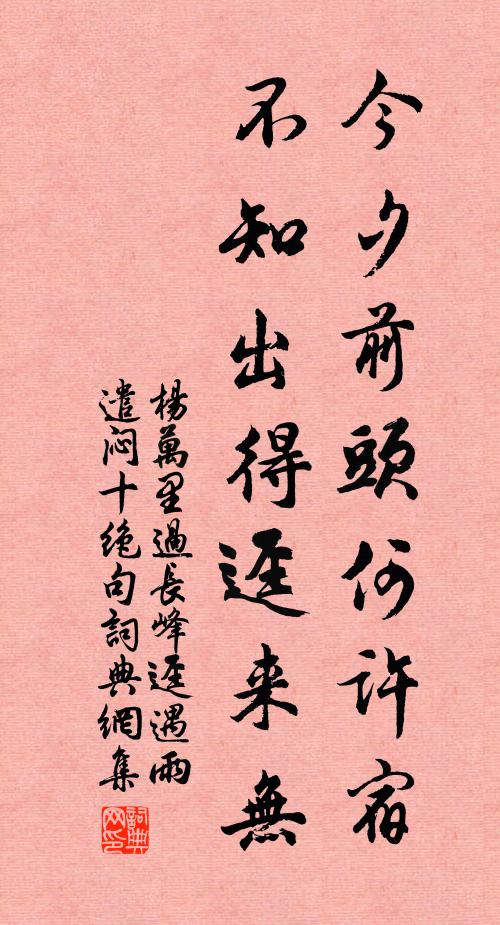 今夕前頭何許宿
不知出得逕来無
楊萬里過長峰逕遇雨
遣闷十绝句詞典網集
詞典
网印